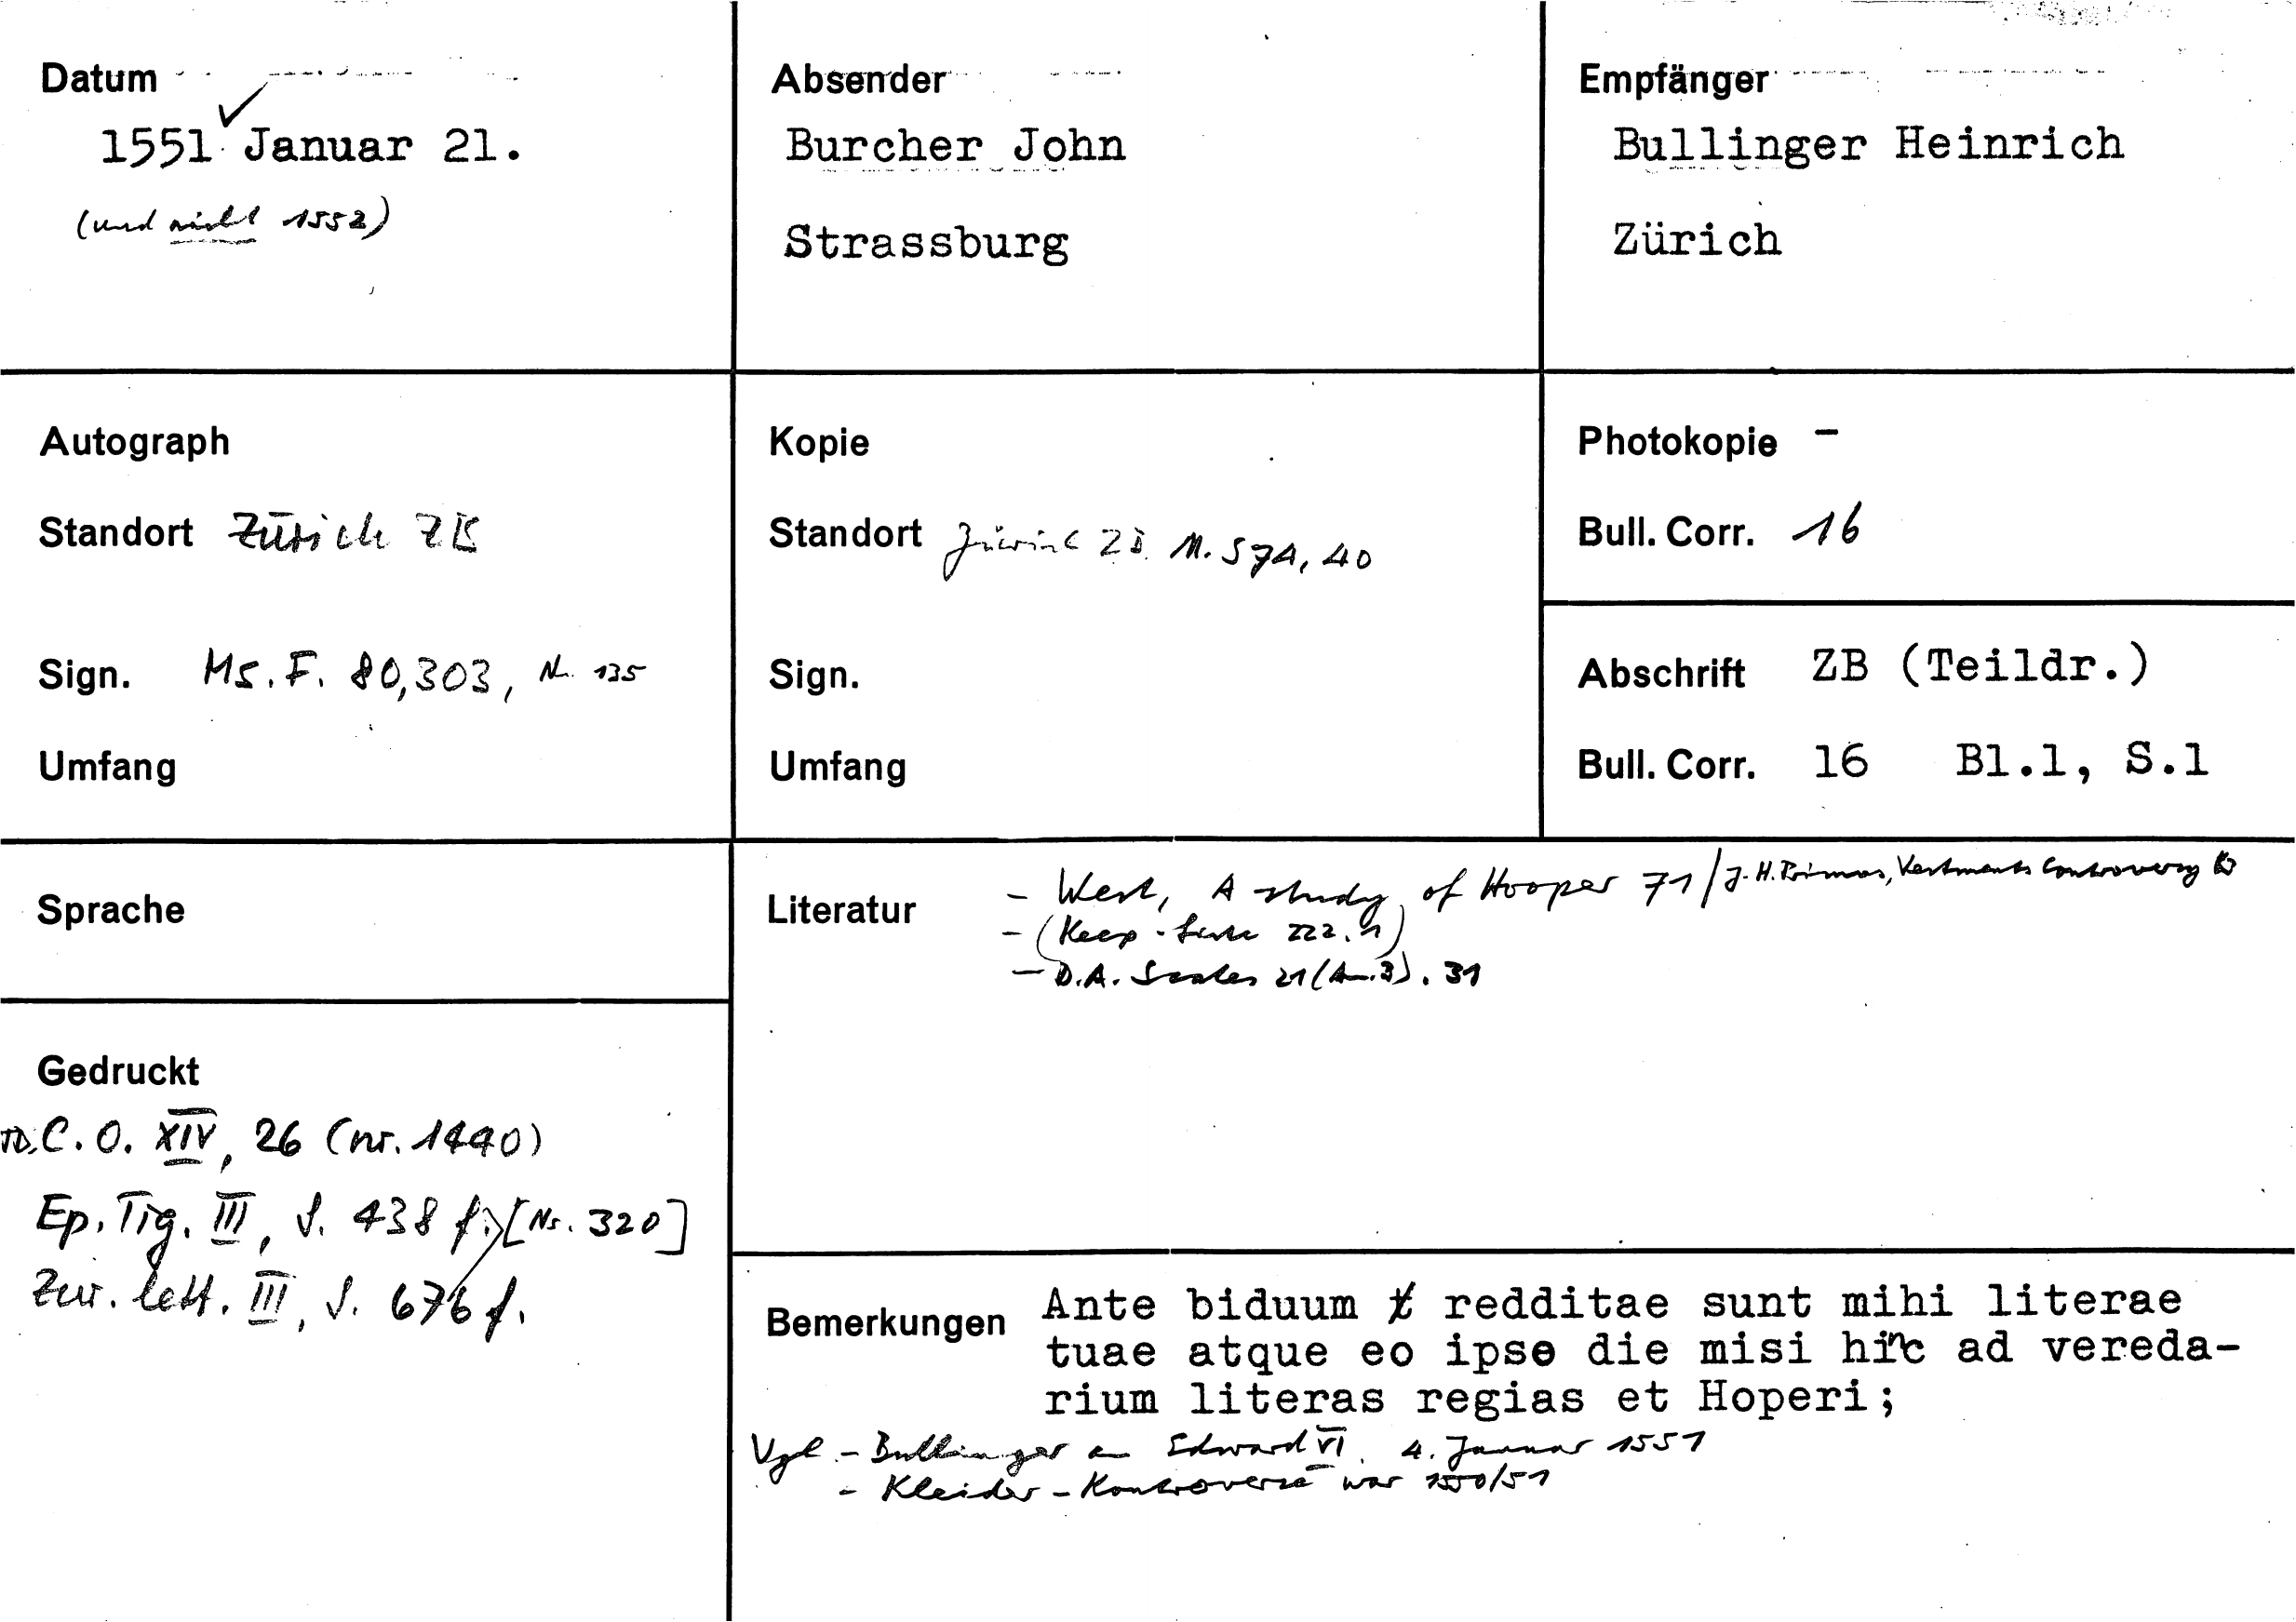 Datum
1551 Januar 21.
(und nicht 1552)
Absender
Burcher John
Strassburg
Empfänger
Bullinger Heinrich
Zürich
Autograph
Standort Zürich ZB
Sign. Ms. F. 80,303, Nr. 135
Umfang
Kopie
Standort Zürich ZB M. S 74, 40
Sign.
Umfang
Photokopie -
Bull. Corr. 16
Abschrift ZB (Teildr.)
Bull. Corr. 16 Bl.1, S.1
Sprache
Literatur - West, A study of Hooper 71 / J. H. Primus, Vestments Controversy
- (Keep 222. )
- D.A. Scales 21 (Anm. 3). 31
Gedruckt
C. O. XIV, 26 (nr. 1440)
Ep. Tig. III, S. 438 f. [Nr. 320]
Zur. lett. III, S. 676 f.
Bemerkungen Ante biduum redditae sunt mihi literae
tuae atque eo ipso die misi hinc ad vereda-
rium literas regias et Hoperi;
Vgl. - Bullinger an Edward VI. 4. Januar 1551
- Kleider-Kontroverse war 1550/51